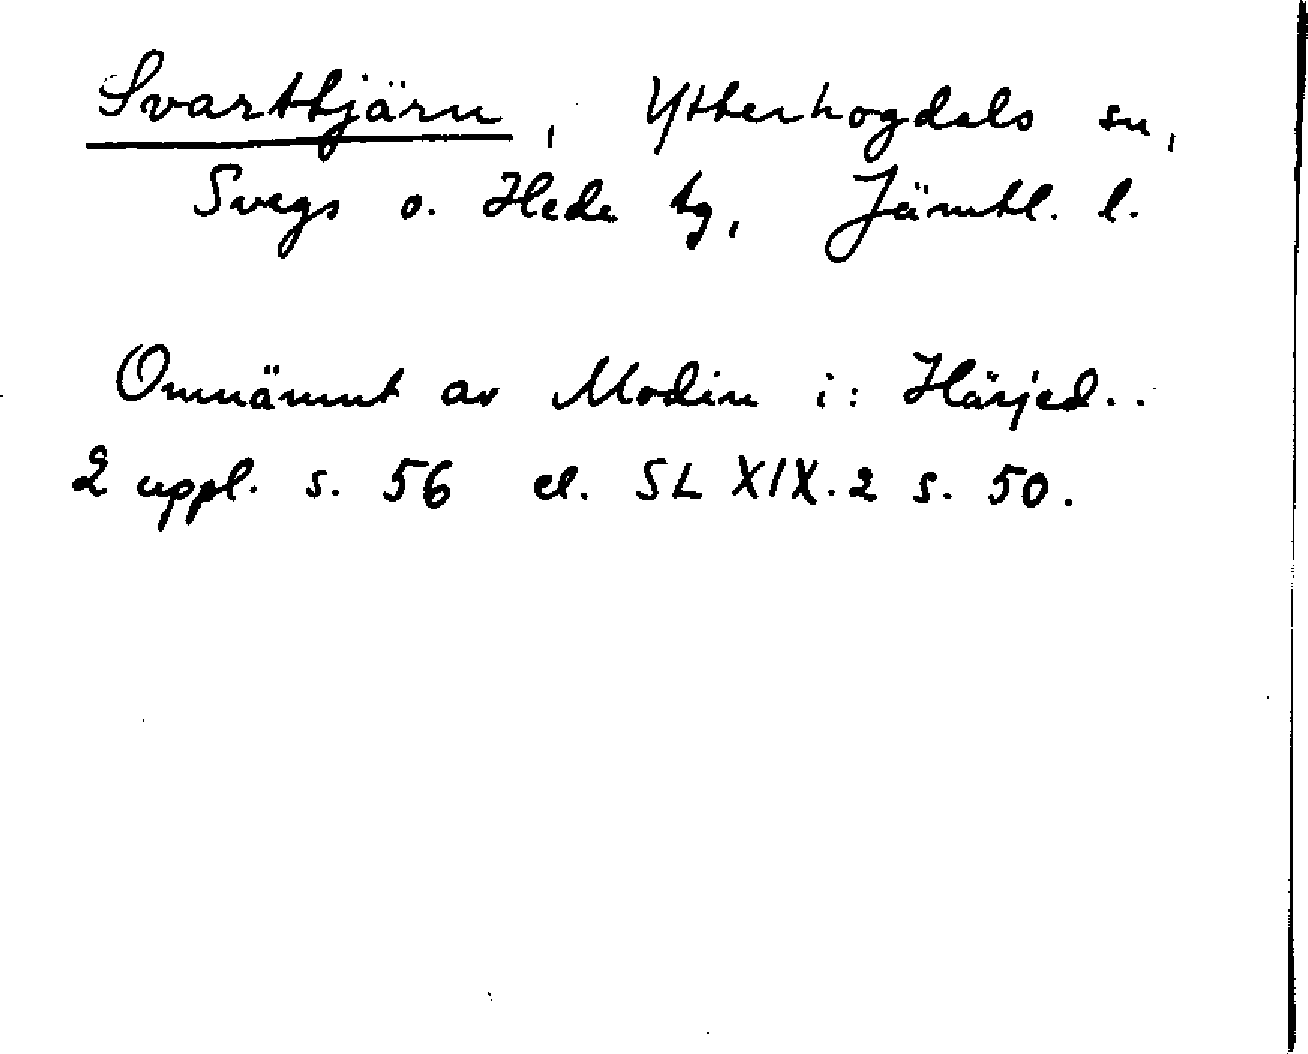 Svarttjärn, Ytterhogdals sn,
Svegs o. Hede tg, Jämtl. l.
Omnämnt av Modin i: Härjed..
2 uppl. s. 56 el. SL XIX.2 s. 50.